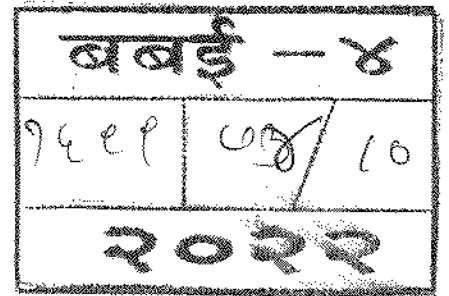 बबई - ४
१६९९ / ८०
२०२२